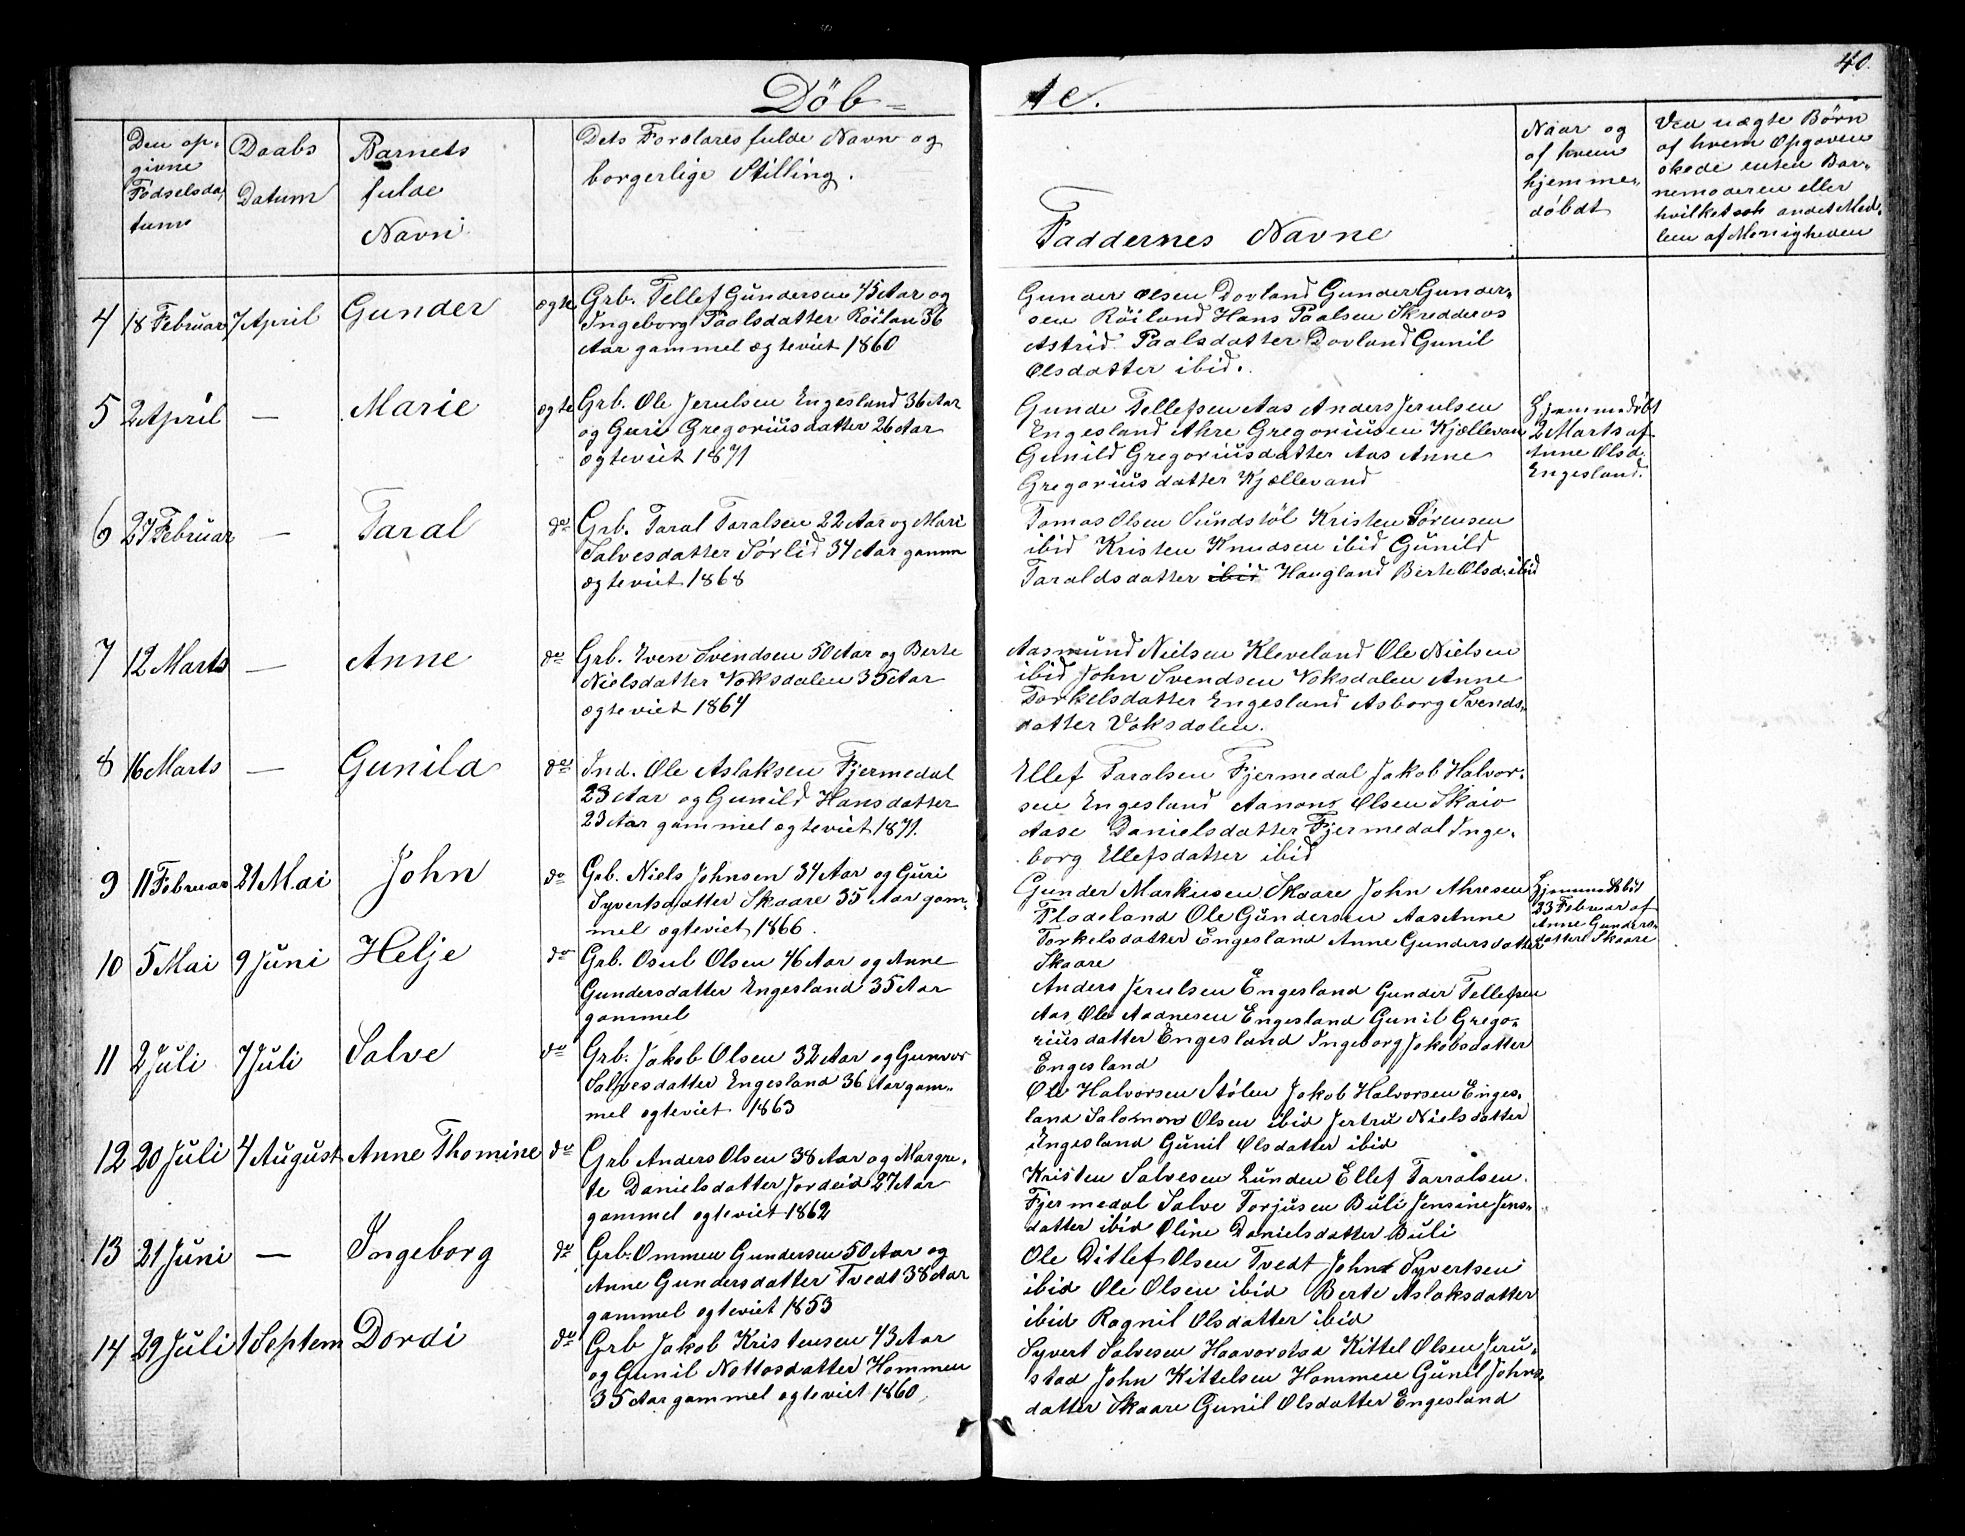 40.
Døb=
te.
Den op-
givne
Fødselsda-
tum
Daabs
Datum
Barnets
fulde
Navn
Dets Forældres fulde Navn og
borgerlige Stilling.
Faddernes Navne
Naar og
af hvem
hjemme-
døbdt
Ved uægte Børn
af hvem Opgaven
skede enten Bar-
nemoderen eller
hvilket andet Med-
lem af Menigheden
4 18 Februar 7 April Gunder ægte
Grb. Tellef Gundersen 45 Aar og
Ingeborg Paalsdatter Röilan 36
Aar gammel ægteviet 1860
Gunder Olsen Dovland Gunder Gunder-
sen Röiland Hans Paalsen Skredderos
Astrid Paalsdatter Dovland Gunil
Olsdatter ibid.
5 2 April — Marie ægte
Grb. Ole Jerulsen Engesland 36 Aar
og Guri Gregoriusdatter 26 Aar
ægteviet 1871
Gunde Tellefsen Aas Anders Jerulsen
Engesland Ahre Gregoriusen Kjællevan
Gunild Gregoriusdatter Aas Anne
Gregoriusdatter Kjællevand
Hjemmedöbt
2 Marts af
Anne Olsd.
Engesland.
6 27 Februar — Taral do
Grb. Taral Taralsen 22 Aar og Mari
Salvesdatter Sørlid 34 Aar gamm
ægteviet 1868
Tomas Olsen Sundstöl Kristen Sörensen
ibid Kristen Knudsen ibid Gunild
Taraldsdatter ibid Haugland Berte Olsd. ibid
7 12 Marts — Anne do
Grb. Iven Svendsen 50 Aar og Berte
Nielsdatter Voksdalen 35 Aar
ægteviet 1864
Aasmund Nielsen Kleveland Ole Nielsen
ibid John Svendsen Voksdalen Anne
Torkelsdatter Engesland Asborg Svends-
datter Voksdalen.
8 16 Marts — Gunild do
Ind. Ole Aslaksen Fjermedal
23 Aar og Gunild Hansdatter
23 Aar gammel ægteviet 1871.
Ellef Taralsen Fjermedal Jakob Halvor-
sen Engesland Aanon Olsen Skaiv
Aase Danielsdatter Fjermedal Inge-
borg Ellefsdatter ibid
9 11 Februar 21 Mai John do
Grb. Niels Johnsen 34 Aar og Guri
Syvertsdatter Skaare 35 Aar gam-
mel ægteviet 1866.
Gunder Markusen Skaare John Ahresen
Fladeland Ole Gundersen Aas Anne
Torkelsdatter Engesland Anne Gundersdatter
Skaare
Hjemmedöbt
23 Februar af
Anne Gunders-
datter Skaare
10 5 Mai 9 Juni Helje do
Grb. Osul Olsen 46 Aar og Anne
Gundersdatter Engesland 35 Aar
gammel
Anders Jerulsen Engesland Gunder Tellefsen
Aas Ole Aadnesen Engesland Gunil Grego-
riusdatter Engesland Ingeborg Jakobsdatter
Engesland
11 2 Juli 7 Juli Salve do
Grb. Jakob Olsen 32 Aar og Gunvor
Salvesdatter Engesland 36 Aar gam-
mel ægteviet 1863
Ole Halvorsen Stölen Jakob Halvorsen Enges-
land Salomon Olsen ibid Jertru Nielsdatter
Engesland Gunil Olsdatter ibid
12 20 Juli 4 August Anne Thomine do
Grb Anders Olsen 38 Aar og Margre-
te Danielsdatter Jordeid 27 Aar
gammel ægteviet 1862
Kristen Salvesen Lunden Ellef Tarralsen
Fjermedal Salve Torjusen Buli Jensine Jens-
datter ibid Oline Danielsdatter Buli
13 21 Juni — Ingeborg do
Grb. Ommen Gundersen 50 Aar og
Anne Gundersdatter Tvedt 38 Aar
gammel ægteviet 1853
Ole Ditlef Olsen Tvedt John Syvertsen
ibid Ole Olsen ibid Berte Aslaksdatter
ibid Ragnil Olsdatter ibid
14 29 Juli 1 Septem Dordi do
Grb Jakob Kristensen 43 Aar
og Gunil Nottosdatter Hommen
35 Aar gammel ægteviet 1860
Syvert Salvesen Haavorstad Kittel Olsen Jeru-
stad John Kittelsen Hommen Gunil Johns-
datter Skaare Gunil Olsdatter Engesland